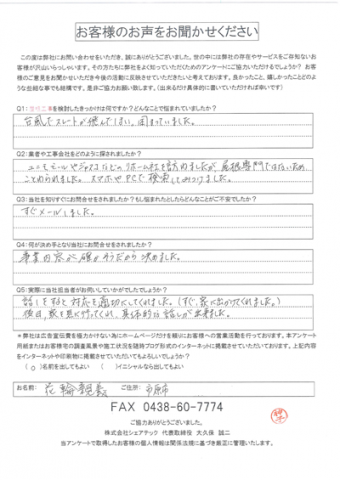 お客様のお声をお聞かせください
この度は弊社にお問い合わせをいただき、誠にありがとうございました。世の中には弊社の存在やサービスをご存知ないお
客様が沢山いらっしゃいます。その方たちに弊社をよく知っていただくためのアンケートにご協力いただけるでしょうか? お客
様のご意見をお聞かせいただき今後の活動に反映させていただきたいと考えております。良かったこと、嬉しかったことどのよ
うな些細な事でも結構です。是非ご協力お願い致します。(出来るだけ具体的に書いていただければ幸いです)
Q1:を検討したきっかけは何ですか?どんなことで悩まれていましたか?
台風でスレートが飛んでしまい、困っていました。
Q2:業者や工事会社をどのように探されましたか?
ユニモールやジャスコなどのリホーム社を訪ねましたが屋根専門ではないため、
ことわられました。スマホやPCで検索してみつけました。
Q3:当社を知りすぐにお問合せをされましたか?もし悩まれたとしたらどんなことがご不安でしたか?
すぐメールしました。
Q4:何が決め手となり当社にお問合せをされましたか?
事業内容が確かそうだから決めました。
Q5:実際に当社担当者がお伺いしていかがでしたでしょうか?
話しをすると対応を適切にしてくれました。(すぐ家に出かてくれました。)
後日、敷を見に行ってくれ、具体的な話しが出来ました。
*弊社は広告宣伝費を極力かけない為にホームページだけを頼りにお客様への営業活動を行っております。本アンケート
用紙またはお客様宅の調査風景や施工状況を随時ブログ形式のインターネットに掲載させていただいております。上記内容
をインターネットや印刷物に掲載させていただいてもよろしいでしょうか?
(○)名前を出してもよい ( )イニシャルなら出してもよい
お名前: 花輪 ご住所: 市原市
FAX 0438-60-7774
ご協力ありがとうございました。
株式会社シェアテック 代表取締役 大久保 誠二
当アンケートで取得したお客様の個人情報は関係法規に基づき厳正に管理いたします。